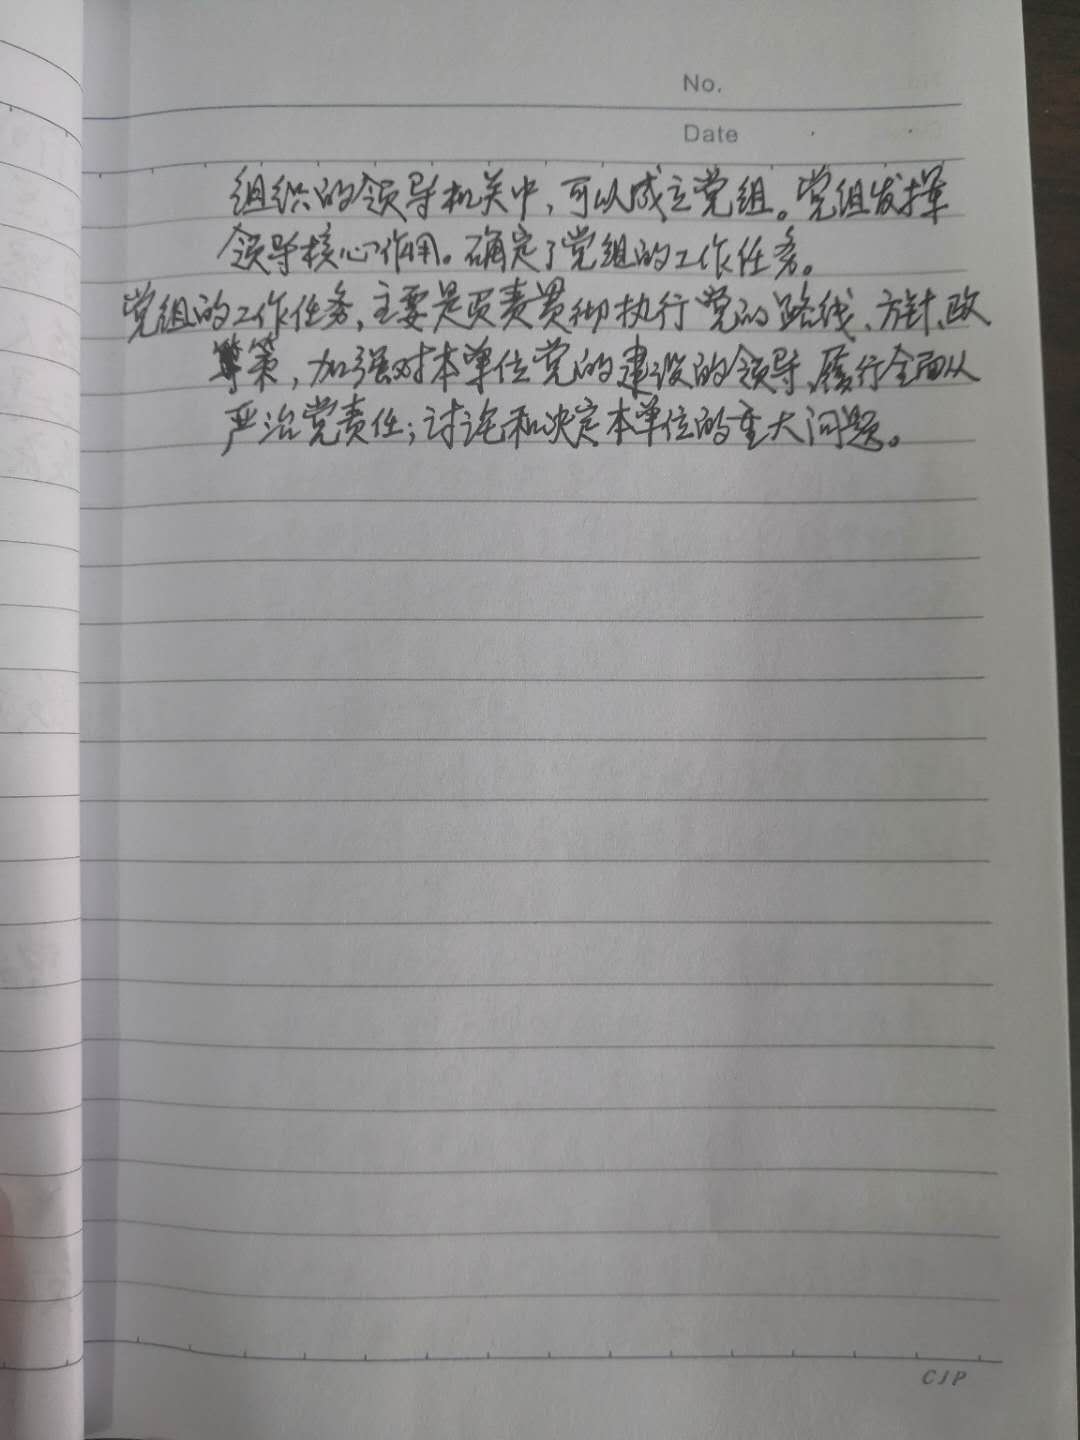 No.
Date
组织的领导机关中，可以成立党组。党组发挥
领导核心作用。确定了党组的工作任务。
党组的工作任务，主要是负责贯彻执行党的路线、方针、政
策，加强对本单位党的建设的领导、履行全面从
严治党责任；讨论和决定本单位的重大问题。
CJP